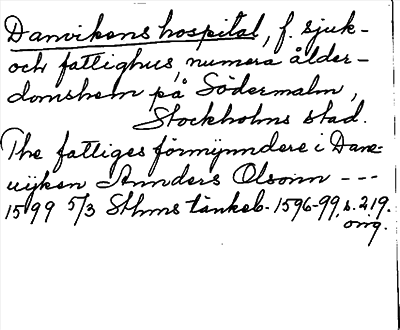 Danvikens hospital, f. sjuk-
och fattighus, numera ålder-
domshem på Södermalm,
Stockholms stad.
The fattiges förmynndere i Dane-
uijken Annders Olsonn ---
1599 5/3 Sthms tänkeb. 1596-99, s. 219.
orig.